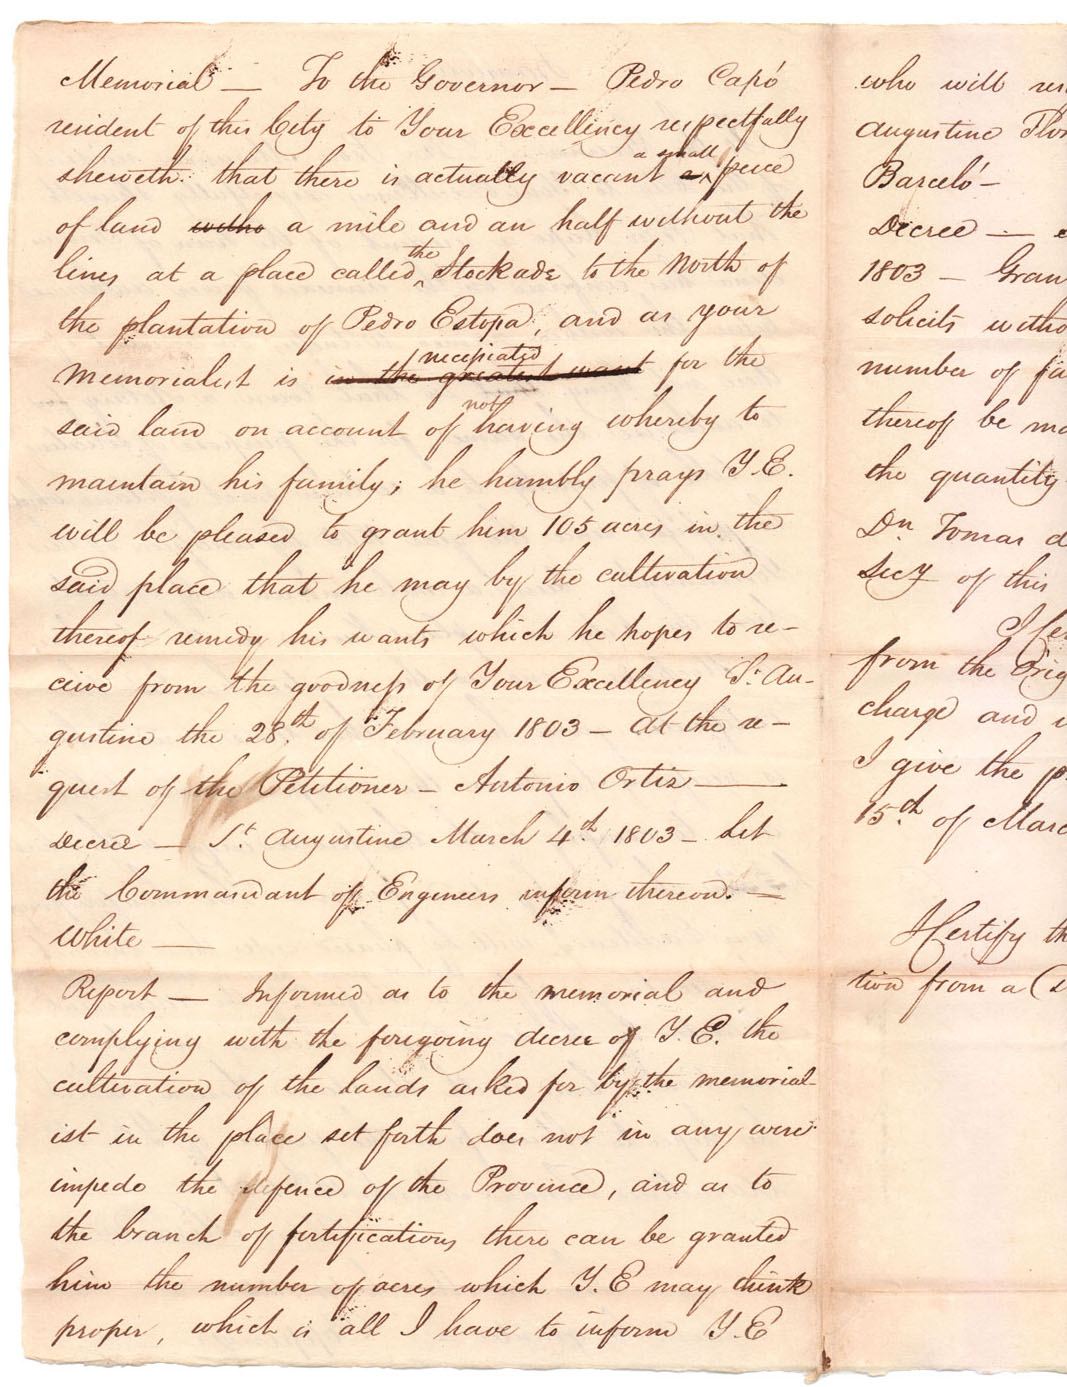 Memorial — To the Governor — Pedro Capó
resident of this City to Your Excellency respectfully
sheweth: that there is actually vacant a a small peice
of land witho a mile and an half without the
lines at a place called the Stockade to the North of
the plantation of Pedro Estopa, and as your
Memorialist is in the greatest want necessiated for the
said land on account of not having whereby to
maintain his family; he humbly prays Y.E.
will be pleased to grant him 105 acres in the
said place that he may by the cultivation
thereof remedy his wants which he hopes to re-
ceive from the goodness of Your Excellency St. Au-
gustine the 28.th of February 1803 — At the re-
quest of the Petitioner — Antonio Ortiz —
Decree — St. Augustine March 4th. 1803 — Let
the Commandant of Engineers inform thereon. —
White —
Report — Informed as to the memorial and
complying with the foregoing decree of Y.E. the
cultivation of the lands asked for by the memorial-
ist in the place set forth does not in any
impede the defence of the Province, and as to
the branch of fortifications there can be granted
him the number of acres which Y.E may think
proper, which is all I have to inform Y.E
who will
Augustine Flor
Barceló —
Decree —
1803 — Gran
solicits witho
number of fa
thereof be ma
the quantity
Dn. Tomas d
Secy of this
I Cer
from the Orig
charge and
I give the p
15.th of Marc
I Certify th
tion from a (